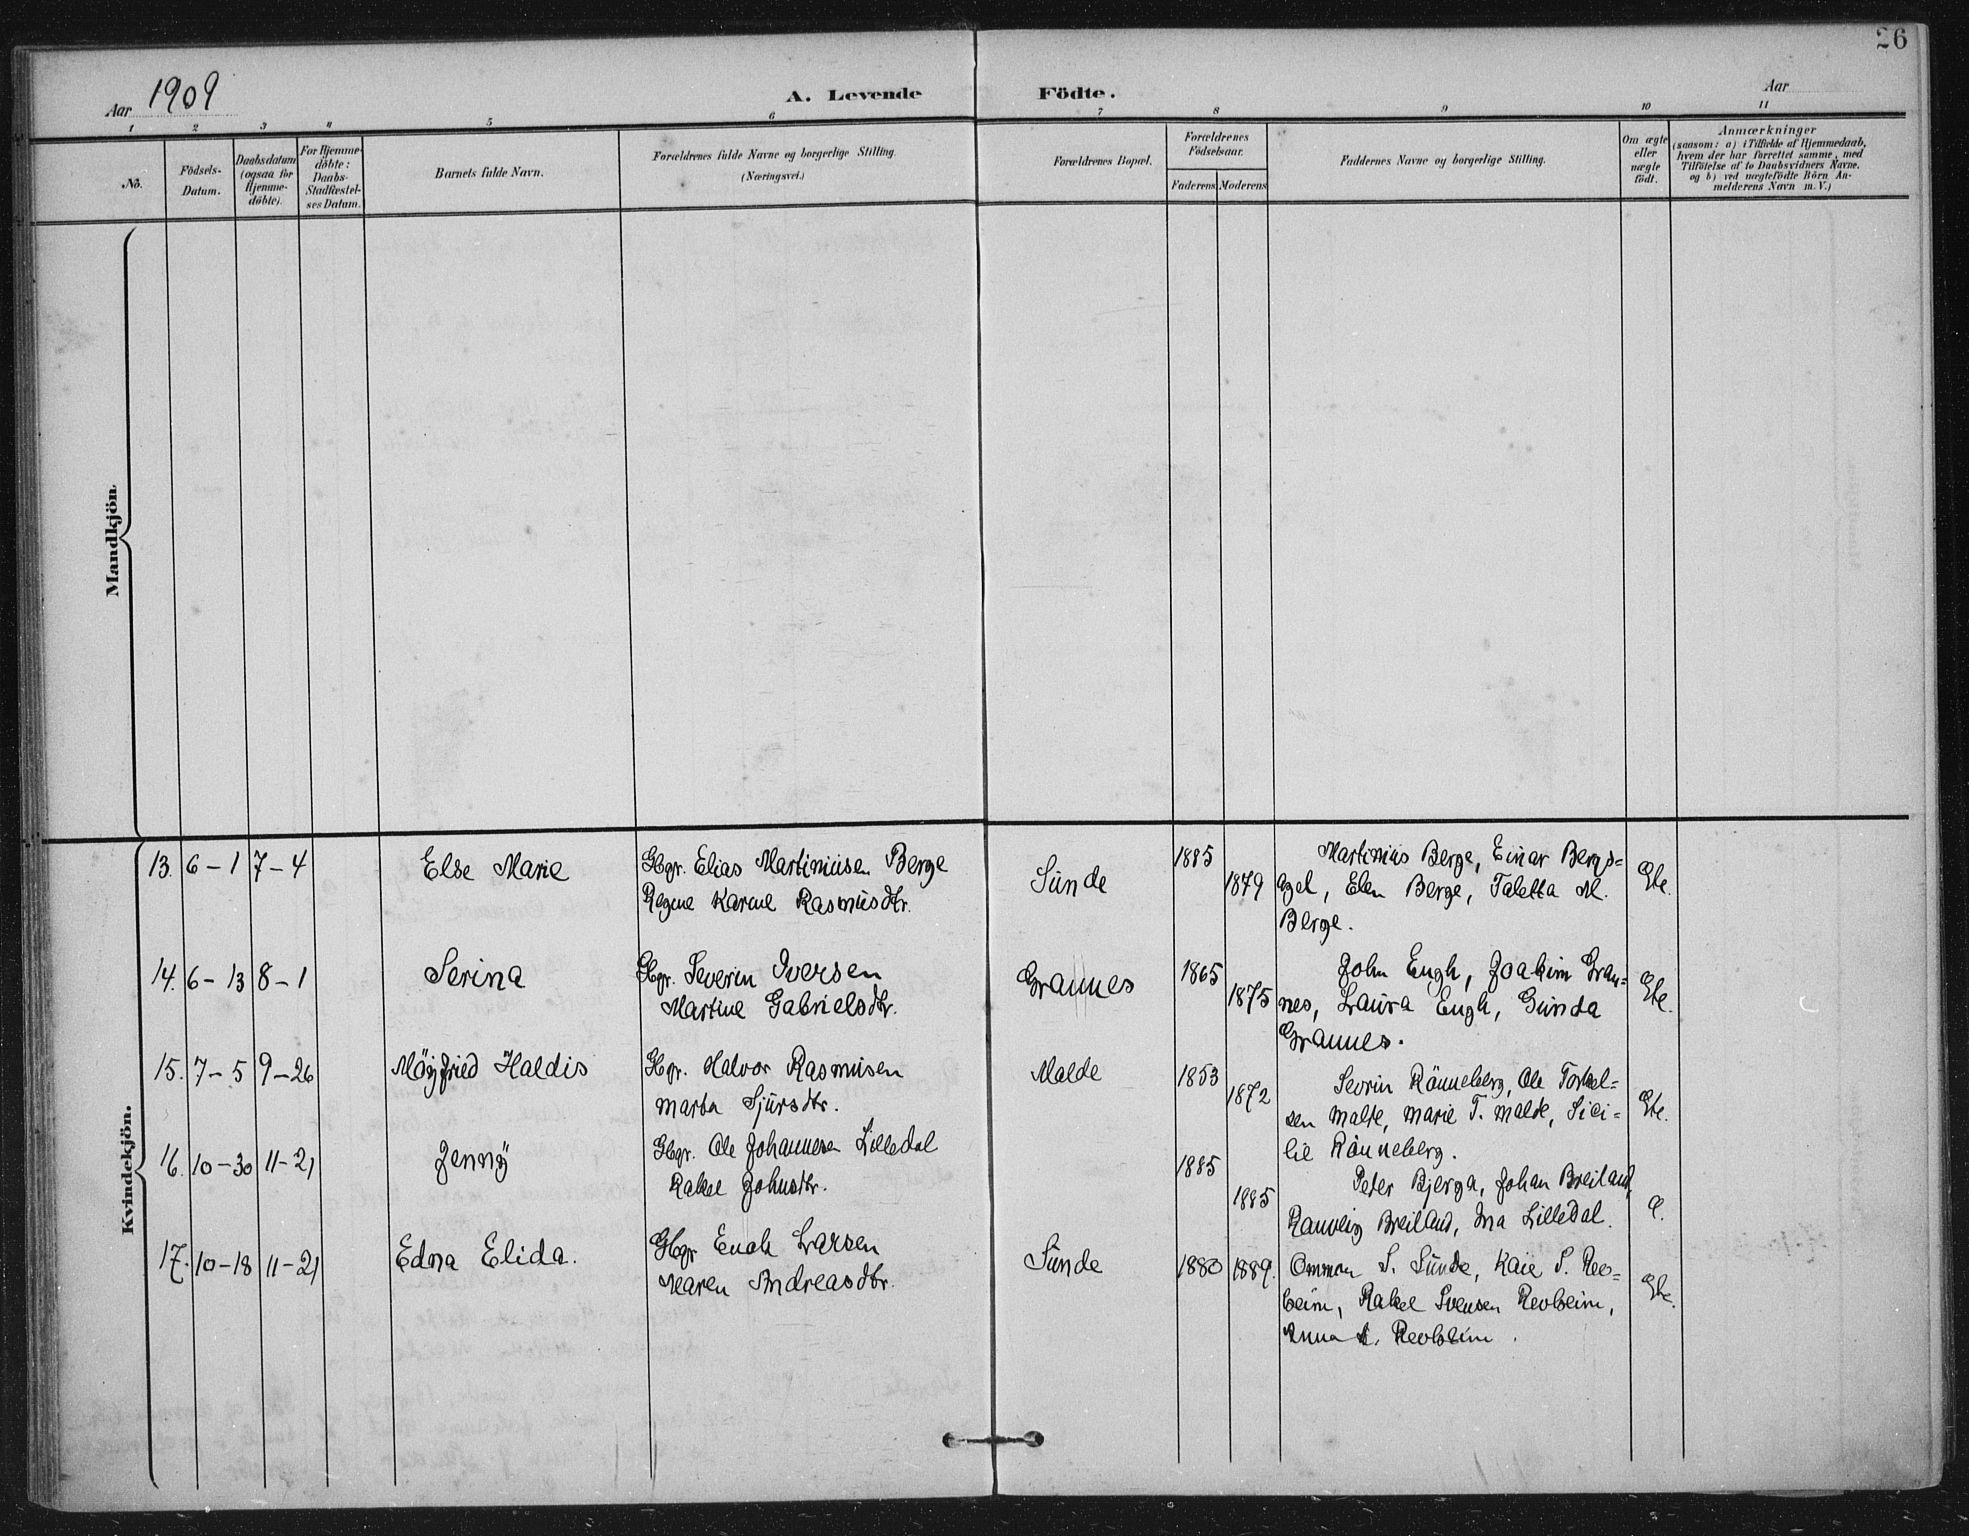 26
Aar 1909
A. Levende Födte.
Aar
1 2 3 4 5 6 7 8 9 10 11
No.
Födsels-
Datum.
Daabsdatum
(ogsaa for
Hjemme-
döbte).
For Hjemme-
döbte:
Daabs-
Stadfæstel-
ses Datum.
Barnets fulde Navn.
Forældrenes fulde Navne og borgerlige Stilling.
(Næringsvei.)
Forældrenes Bopæl.
Forældrenes
Födselsaar.
Faderens Moderens
Faddernes Navne og borgerlige Stilling.
Om ægte
eller
uægte
födt.
Anmærkninger
(saasom: a) i Tilfælde af Hjemmedaab,
hvem der har forrettet samme, med
Tilföielse af to Daabsvidners Navne.
og b) ved uægtefödte Börn An-
melderens Navn m.V.)
Mandkjön.
Kvindekjön.
13. 6-1 7-4 Else Marie
Gbgr. Elias Martiniusen Berge
Regine Karine Rasmusdtr.
Sunde
1885
1879
Martinius Berge, Einar Bergs-
agel, Elen Berge, Taletta M.
Berge.
Gte.
14. 6-13 8-1 Serina
Gbgr. Severin Iversen
Martine Gabrielsdtr.
Grannes
1865
1875
John Engh, Joakim Gran-
nes, Laura Engh, Gunda
Grannes.
Gte.
15. 7-5 9-26 Möyfried Haldis
Gbgr. Halvor Rasmusen
Marta Sjursdtr.
Malde
1853
1872
Sevrin Rönneberg, Ole Torkel-
sen Malde, Marie T. Malde, Sici-
lie Rönneberg.
Gte.
16. 10-30 11-21 Jenny
Gbgr. Ole Johannesen Lilledal
Rakel Johnsdtr.
1885
1885
Peter Bjerga, Johan Breiland,
Ranveig Breiland, Ina Lilledal.
17. 10-18 11-21 Edna Elida.
Gbgr Enok Larsen
Maren Andreasdtr.
Sunde
1880 1889.
Ommon S. Sunde, Kaie S. Rev-
heim, Rakel Svensen Revheim,
Anna Revheim.
Gte.